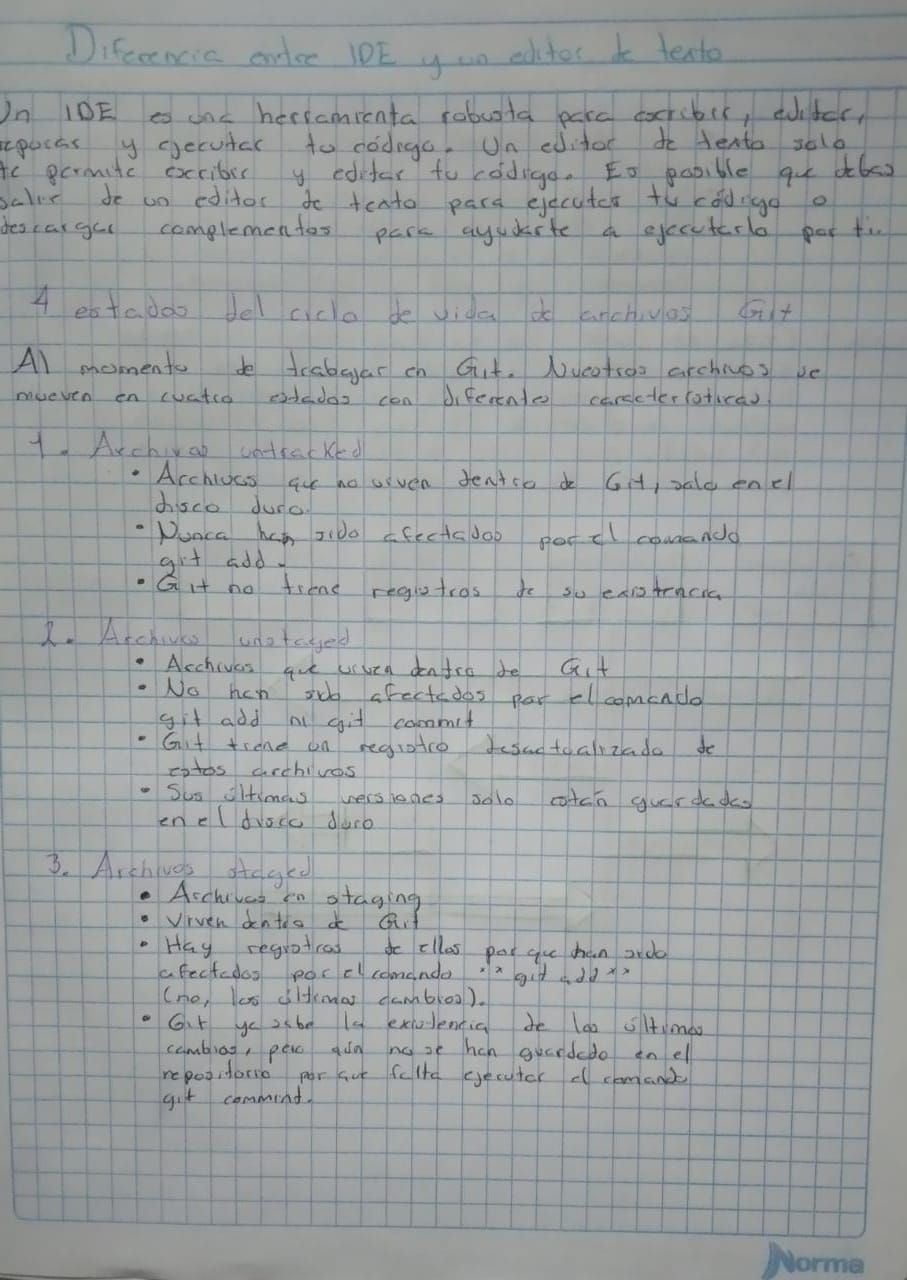 Diferencia entre IDE y un editor de texto
Un IDE es una herramienta robusta para escribir, editar,
epurar y ejecutar tu código. Un editor de texto solo
te permite escribir y editar tu código. Es posible que debas
salir de un editor de texto para ejecutar tu código o
descargar complementos para ayudarte a ejecutarlo por ti.
4 estados del ciclo de vida de archivos Git
Al momento de trabajar en Git. Nuestros archivos se
mueven en cuatro estados con diferentes caracterrsticas.
1. Archivos untracked
• Archivos que no viven dentro de Git, solo en el
disco duro.
• Nunca han sido afectados por el comando
git add.
• Git no tiene registros de su existencia
2. Archivos unstaged
• Archivos que viven dentro de Git
• No han sido afectados por el comando
git add ni git commit
• Git tiene un registro desactualizado de
estos archivos
• Sus últimas versiones solo están guardadas
en el disco duro
3. Archivos staged
• Archivos en staging
• Viven dentro de Git
• Hay registros de ellos por que han sido
afectados por el comando "git add"
(no, los últimos cambios).
• Git ya sabe la existencia de los últimos
cambios, pero aún no se han guardado en el
repositorio por que falta ejecutar el comando
git commint.
Norma